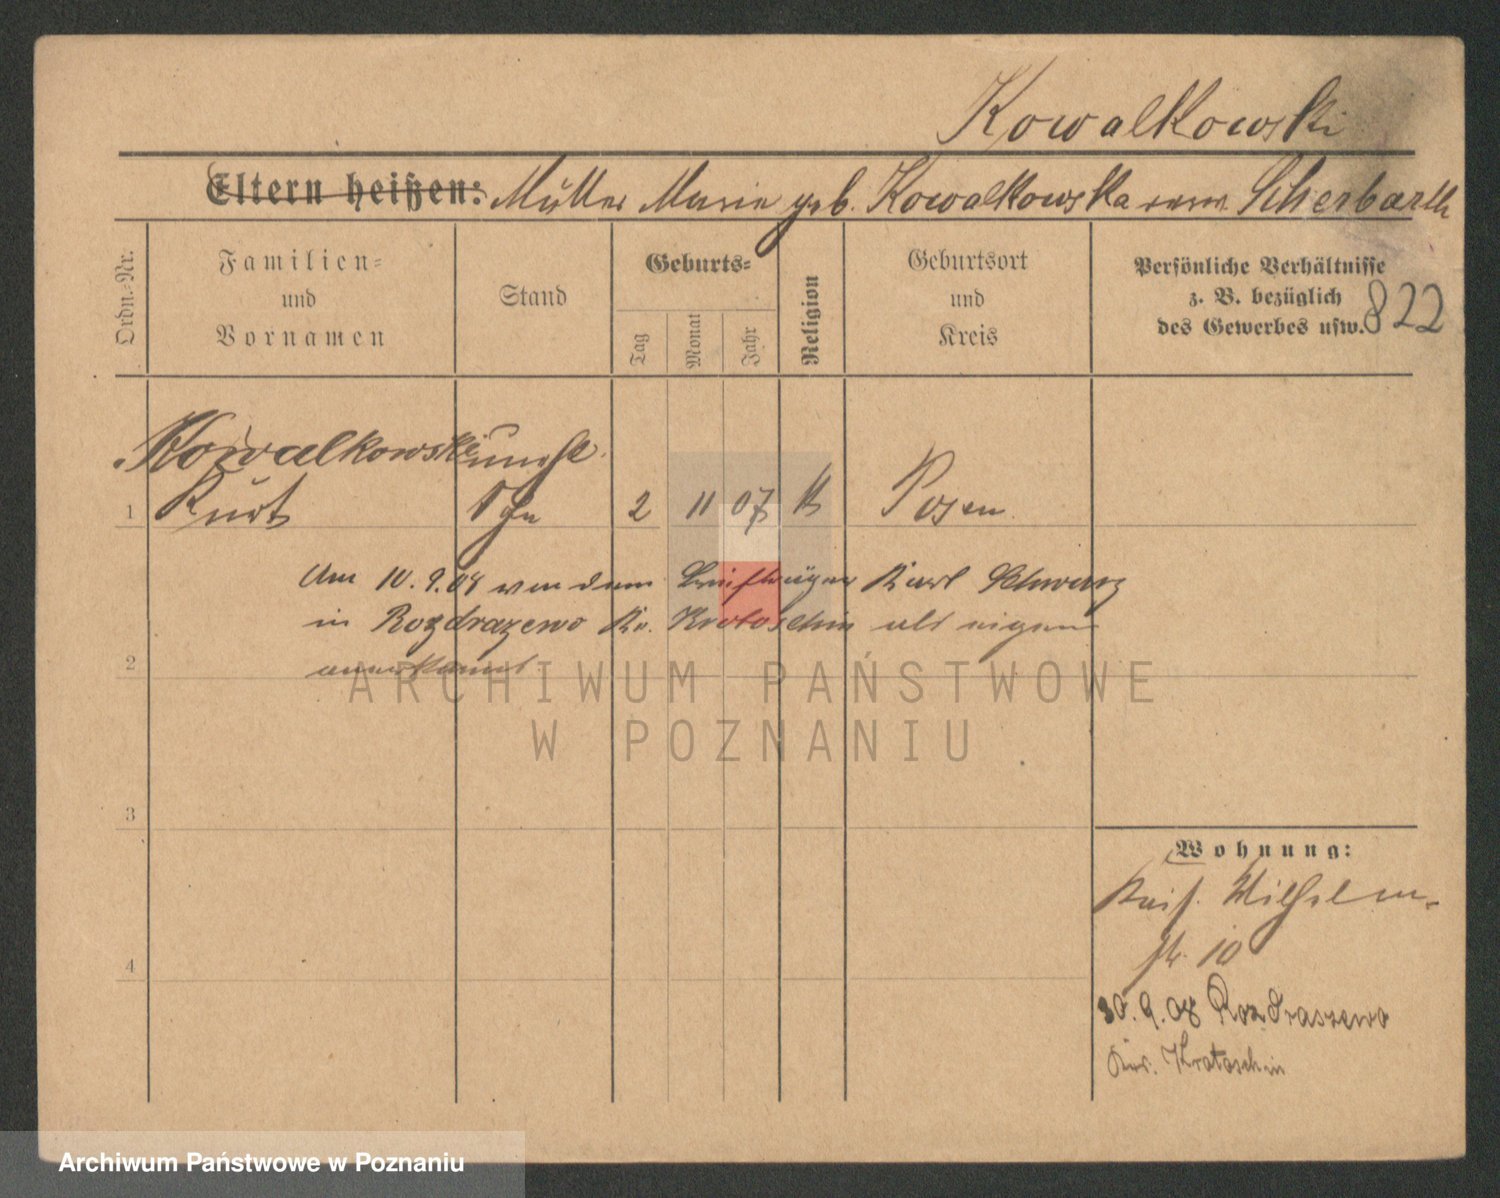 Kowalkowski
Eltern heißen: Mutter Marie geb. Kowalkowska verw. Scherbarth
Ordn.-Nr.
Familien-
und
Vornamen
Stand
Geburts-
Tag
Monat
Jahr
Religion
Geburtsort
und
Kreis
Persönliche Verhältnisse
z. B. bezüglich
des Gewerbes usw.
822
Kowalkowski unehe.
1 Kurt Shn 2 11 07 K Posen
Am 10.9.08 von dem Karl Schwarz
in Rozdrazewo Kr. Krotoschin als eigen
2 anerkannt.
3
4
Wohnung:
Kais. Wilhelm-
str. 10
30.9.08 Rozdraszewo
Krs. Krotoschin
ARCHIWUM PAŃSTWOWE
W POZNANIU
Archiwum Państwowe w Poznaniu